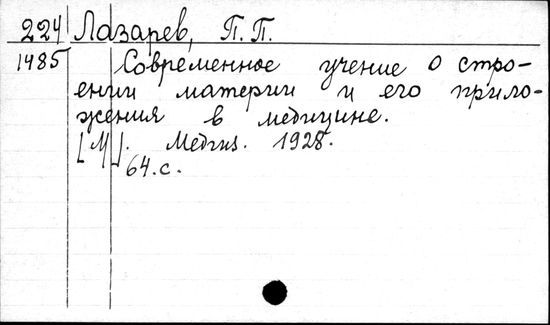 224 Лазарев, П. П.
1485 Современное учение о стро-
ении материи и его прило-
жения в медицине.
[М]. Медгиз. 1928.
64 с.